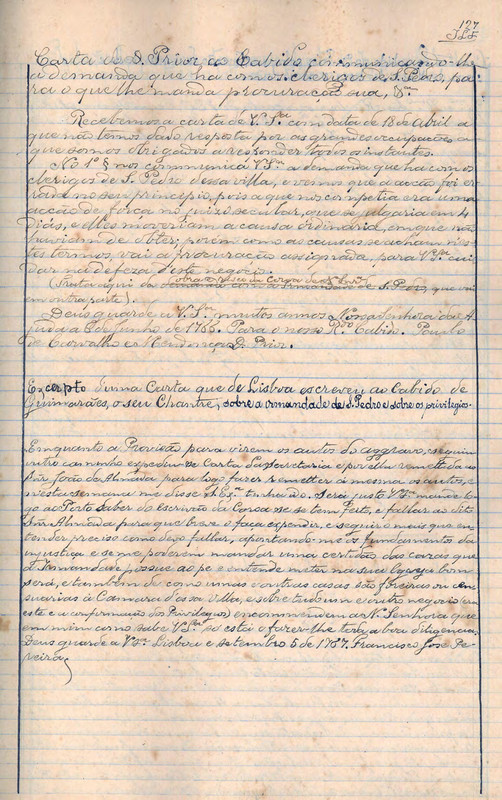 127
Carta do D. Prior, ao Cabido communicando-lhe
a demanda que ha com os clerigos de S. Pedro, pa-
ra o que lhe manda procuração sua,
Recebemos a carta de V.Sªª com data de 13 de Abril a
que não temos dado resposta por as grandes occupações a
que somos obrigados a responder todos os instantes.
No 1º § nos communicá V.Sªª a demanda que ha com os
clerigos de S. Pedro dessa villa, e vemos que a acção foi er-
rada no seu principio, pois a que nos competia era uma
acção de força no juizo secular, que se julgaria em 4
dias, e elles moveriam a causa ordinaria, em que não
haviam de obter; porém como as causas se acham nes-
tes termos, vai a procuração assignada, para V.Sªª cui-
dar na defeza d'este negocio.
sobre o risco da
(Trata aqui da irmandade de S. Pedro, que vai
em outra parte).
Deus guarde a V. Sªª muitos annos Nossa Senhora da A-
juda a 2 de Junho de 1766. Para o nosso R.do Cabido. Paulo
de Carvalho e Mendonça D. Prior.
Excerpto d'uma Carta que de Lisboa escreveu ao Cabido de
Guimarães, o seu Chantre, sobre a irmandade de S. Pedro e sobre os privilegios.
Emquanto á Provisão para virem os autos do aggravo, segui
outro caminho expediu-se Carta da Secretaria e por elle remettida ao
Snr João de Almada para logo fazer remetter á mesma os autos, e
n'esta semana me disse S. Exª tinha ido. Será justo V.Sªª mande lo-
go ao Porto saber do Escrivão da Corôa se se tem feito, e fallar ao dito
Snr Almada para que breve o faça expedir, e seguir o mais que en-
tender preciso como deixo fallar, apontando-me os fundamentos da
injustiça e se me poderem mandar uma certidão das cazas que
a Irmandade possue ao pé e entende meter na sua Egreja bom
será, e também de como umas e outras casas são foreiras ou cen-
suarias á Camara d'essa villa, e sobre tudo um e outro negocio (era
este e a confirmação dos Privilegios) encommendar a N. Senhora que
em mim como sabe V.Sªª só está o fazer-lhe toda a boa diligencia.
Deus guarde a V.Sªª Lisboa e setembro 5 de 1767. Francisco José Pe-
reira,